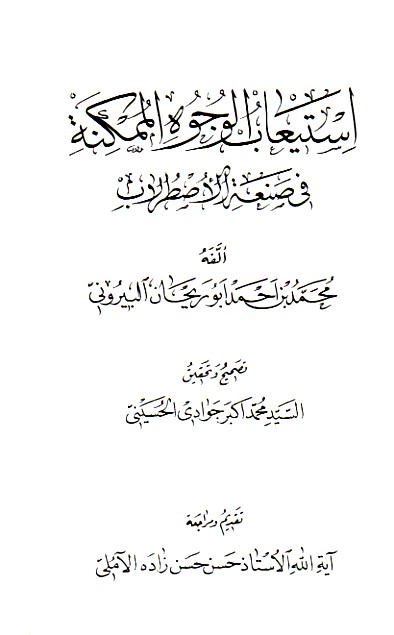 اِسْتيعابُ الْوُجُوهِ الْمُمْكِنَةِ
فى صَنْعَةِ الْأُصْطُرْلابِ
اَلَّفَهُ
مُحَمَّدُ بْنُ اَحْمَد اَبُو رَيْحٰان اَلْبيرُونىّ
تصحيح و تحقيق
السَّيّد محمّد اكبر جَوٰادى الحُسَيْنىّ
تقديم و مراجعة
آية اللّٰه الاُستاذ حَسَن حَسَن زٰاده الآمُلىّ